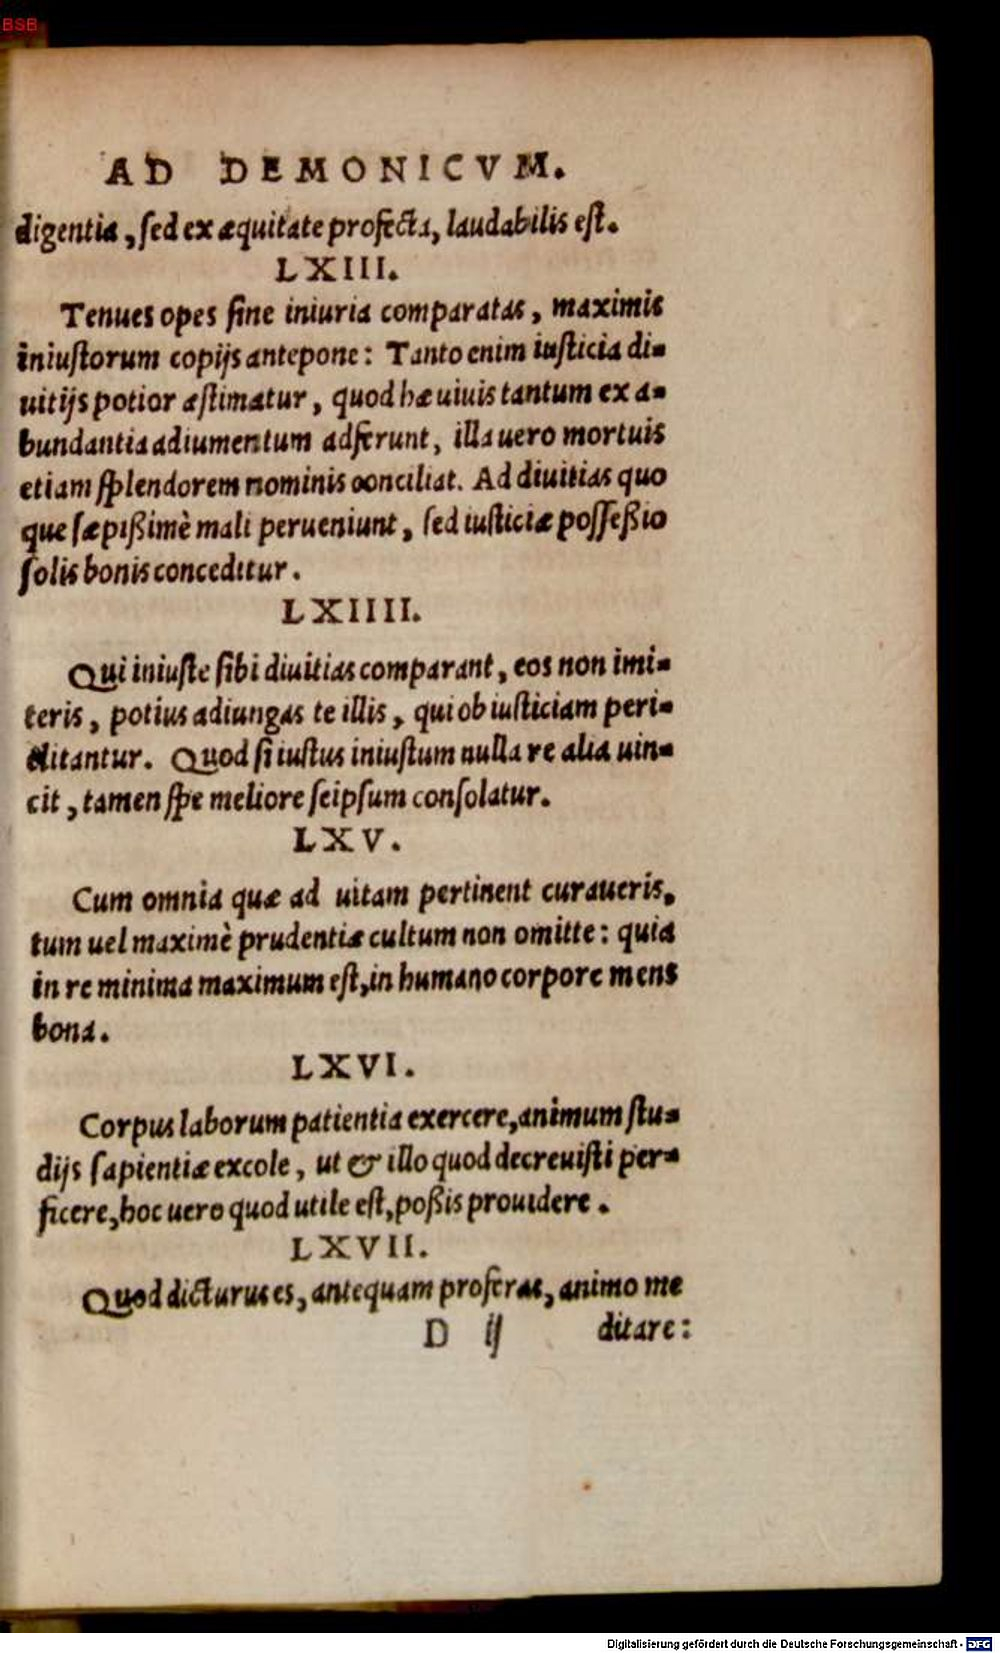 BSB
AD DEMONICVM.
digentia, ſed ex æquitate profecta, laudabilis eſt.
LXIII.
Tenues opes ſine iniuria comparatas, maximis
iniuſtorum copijs antepone: Tanto enim iuſticia di-
uitijs potior æſtimatur, quod hæ uiuis tantum ex a-
bundantia adiumentum adferunt, illa uero mortuis
etiam ſplendorem nominis conciliat. Ad diuitias quo
que ſæpißimè mali perueniunt, ſed iuſticiæ poſſeßio
ſolis bonis conceditur.
LXIIII.
Qui iniuſte ſibi diuitias comparant, eos non imi-
teris, potius adiungas te illis, qui ob iuſticiam peri-
clitantur. Quod ſi iuſtus iniuſtum nulla re alia uin-
cit, tamen ſpe meliore ſeipſum conſolatur.
LXV.
Cum omnia quæ ad uitam pertinent curaueris,
tum uel maximè prudentiæ cultum non omitte: quia
in re minima maximum eſt, in humano corpore mens
bona.
LXVI.
Corpus laborum patientia exercere, animum ſtu-
dijs ſapientiæ excole, ut & illo quod decreuiſti per-
ficere, hoc uero quod utile eſt, poßis prouidere.
LXVII.
Quod dicturus es, antequam proferas, animo me
D ij ditare:
Digitalisierung gefördert durch die Deutsche Forschungsgemeinschaft - DFG